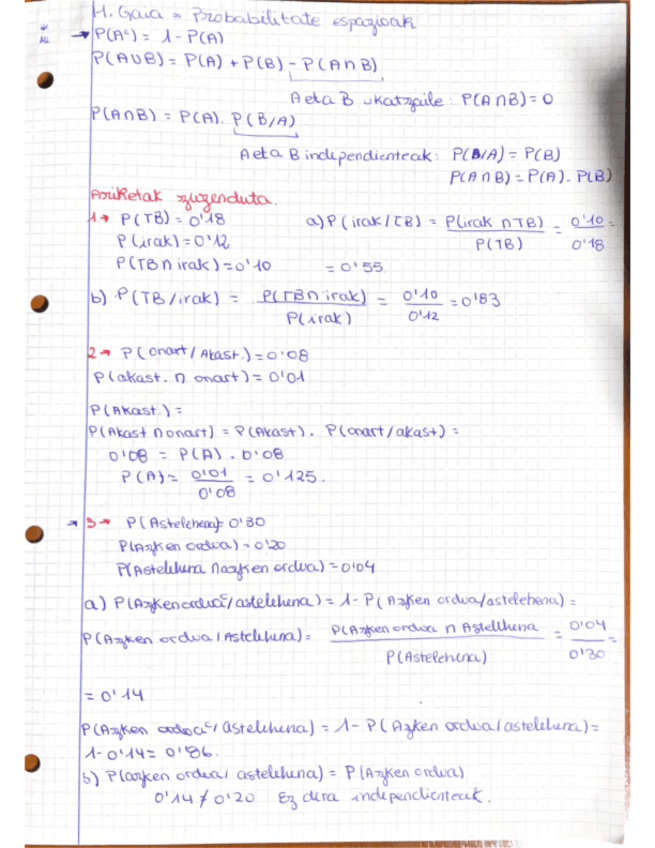 H. Gaia = Probabilitate espazioak
→ P(Aᶜ) = 1 - P(A)
P(A∪B) = P(A) + P(B) - P(A∩B)
A eta B ukatzaile: P(A∩B) = 0
P(A∩B) = P(A). P(B/A)
A eta B independienteak: P(B/A) = P(B)
P(A∩B) = P(A). P(B)
Ariketak zuzenduta.
1→ P(TB) = 0'18
P(irak) = 0'12
P(TB∩irak) = 0'10
a) P(irak/TB) = P(irak∩TB) / P(TB) = 0'10 / 0'18 =
= 0'55
b) P(TB/irak) = P(TB∩irak) / P(irak) = 0'10 / 0'12 = 0'83
2→ P(onart/Akast.) = 0'08
P(akast. ∩ onart) = 0'01
P(Akast.) =
P(Akast∩onart) = P(Akast). P(onart/akast) =
0'08 = P(A). 0'08
P(A) = 0'01 / 0'08 = 0'125.
→ 3→ P(Astelehena) = 0'30
P(Azken ordua) = 0'20
P(Astelehena ∩ azken ordua) = 0'04
a) P(Azken orduaᶜ/astelehena) = 1 - P(Azken ordua/astelehena) =
P(Azken ordua/Astelehena) = P(Azken ordua ∩ Astelehena) / P(Astelehena) = 0'04 / 0'30 =
= 0'14
P(Azken orduaᶜ/astelehena) = 1 - P(Azken ordua/astelehena) =
1 - 0'14 = 0'86.
b) P(azken ordua/astelehena) = P(Azken ordua)
0'14 ≠ 0'20 Ez dira independienteak.